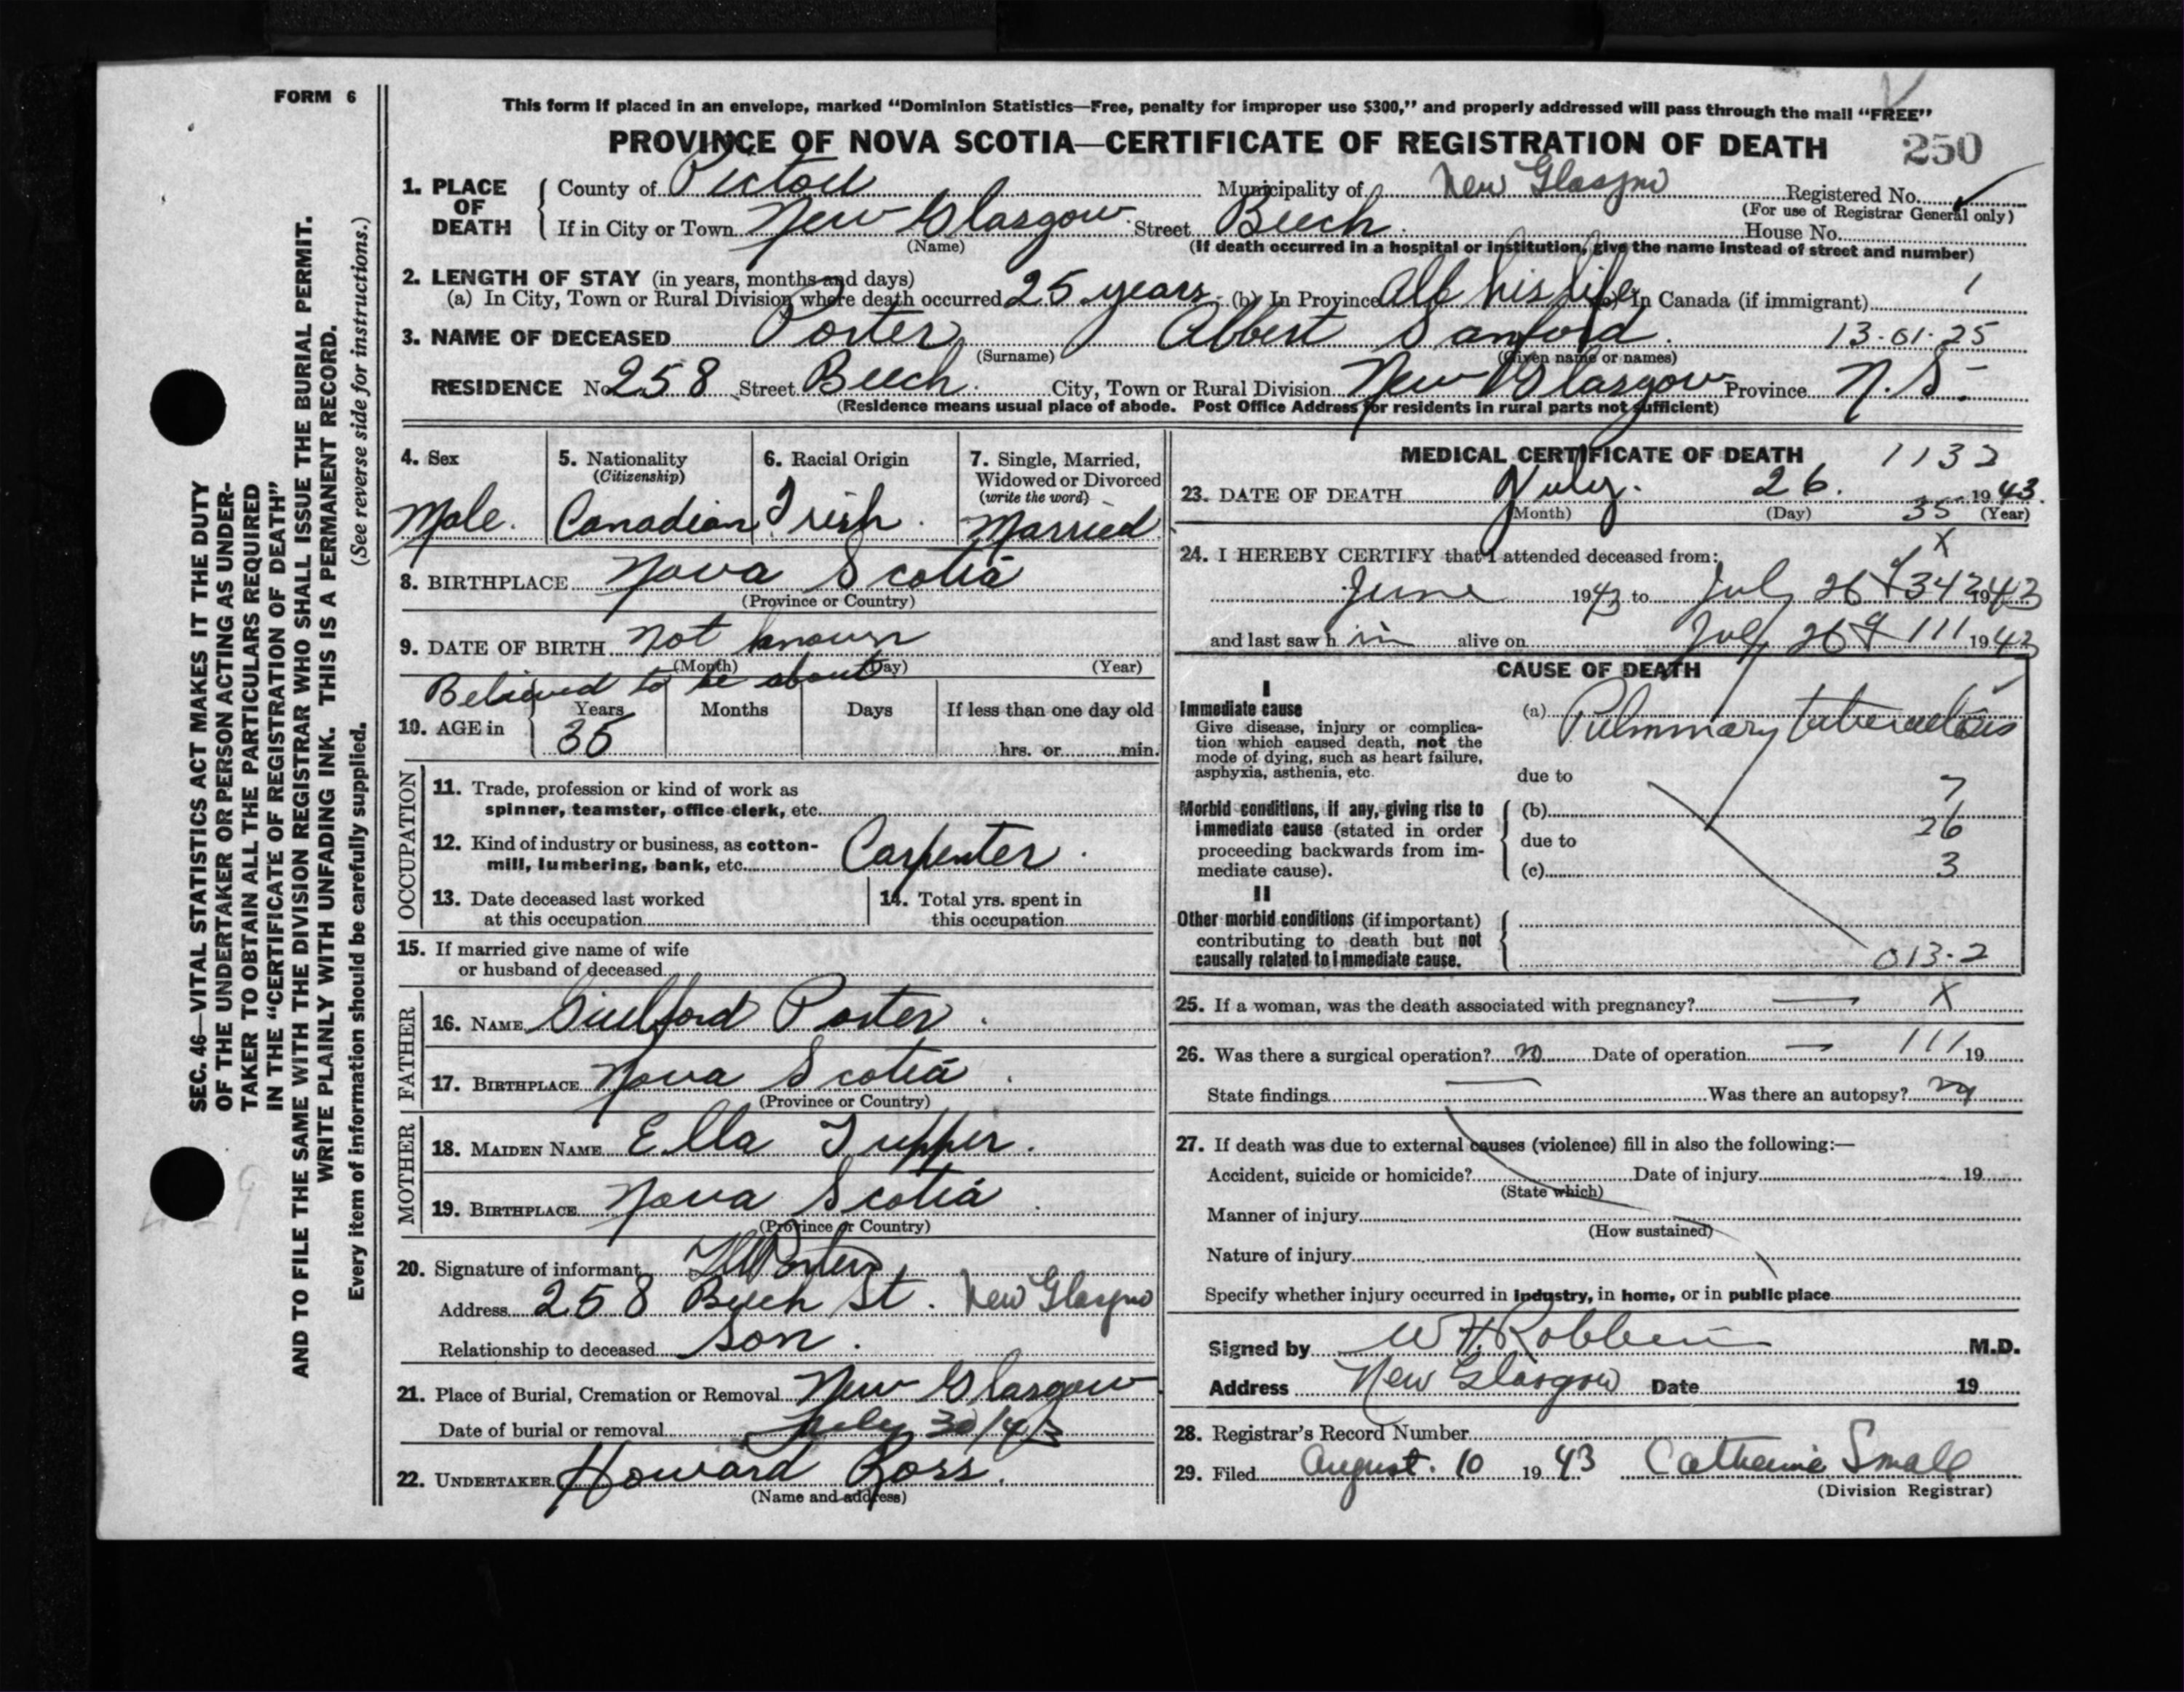 FORM 6
This form if placed in an envelope, marked “Dominion Statistics—Free, penalty for improper use $300,” and properly addressed will pass through the mail “FREE”
PROVINCE OF NOVA SCOTIA—CERTIFICATE OF REGISTRATION OF DEATH 250
1. PLACE OF DEATH County of Pictou Municipality of New Glasgow Registered No.
(For use of Registrar General only)
If in City or Town New Glasgow Street Beech House No.
(Name) (If death occurred in a hospital or institution, give the name instead of street and number)
2. LENGTH OF STAY (in years, months and days)
(a) In City, Town or Rural Division where death occurred 25 years (b) In Province All his life (c) In Canada (if immigrant) 1
3. NAME OF DECEASED Porter, Albert Sanford. 13-01-25
(Surname) (Given name or names)
RESIDENCE No 258 Street Beech. City, Town or Rural Division New Glasgow Province N.S.
(Residence means usual place of abode. Post Office Address for residents in rural parts not sufficient)
4. Sex 5. Nationality 6. Racial Origin 7. Single, Married,
(Citizenship) Widowed or Divorced
(write the word)
Male. Canadian Irish. Married
8. BIRTHPLACE Nova Scotia
(Province or Country)
9. DATE OF BIRTH not known
(Month) (Day) (Year)
Believed to be about
Years Months Days If less than one day old
10. AGE in 35 hrs. or min.
OCCUPATION
11. Trade, profession or kind of work as
spinner, teamster, office clerk, etc.
12. Kind of industry or business, as cotton-
mill, lumbering, bank, etc. Carpenter.
13. Date deceased last worked
at this occupation
14. Total yrs. spent in
this occupation
15. If married give name of wife
or husband of deceased
FATHER
16. NAME Guilford Porter.
17. BIRTHPLACE Nova Scotia.
(Province or Country)
MOTHER
18. MAIDEN NAME Ella Tupper.
19. BIRTHPLACE Nova Scotia.
(Province or Country)
20. Signature of informant Porter
Address 258 Beech St. New Glasgow
Relationship to deceased Son.
21. Place of Burial, Cremation or Removal New Glasgow
Date of burial or removal July 30/43
22. UNDERTAKER Howard Ross.
(Name and address)
MEDICAL CERTIFICATE OF DEATH 1132
23. DATE OF DEATH July. 26. 1943.
(Month) (Day) 35 (Year)
24. I HEREBY CERTIFY that I attended deceased from: X
June 1943 to July 26 1943
and last saw h im alive on July 26 111 1943
CAUSE OF DEATH
I
Immediate cause (a) Pulmonary tuberculosis
Give disease, injury or complica-
tion which caused death, not the
mode of dying, such as heart failure,
asphyxia, asthenia, etc. due to
7
Morbid conditions, if any, giving rise to (b)
immediate cause (stated in order 26
proceeding backwards from im- due to
mediate cause). (c) 3
II
Other morbid conditions (if important)
contributing to death but not
causally related to immediate cause. 013-2
25. If a woman, was the death associated with pregnancy? — X
26. Was there a surgical operation? no Date of operation — 111 19
State findings — Was there an autopsy? no
27. If death was due to external causes (violence) fill in also the following:—
Accident, suicide or homicide? Date of injury 19
(State which)
Manner of injury
(How sustained)
Nature of injury
Specify whether injury occurred in industry, in home, or in public place
Signed by W H Robbins M.D.
Address New Glasgow Date 19
28. Registrar's Record Number
29. Filed August. 10 1943 Catherine Small
(Division Registrar)
SEC. 46—VITAL STATISTICS ACT MAKES IT THE DUTY
OF THE UNDERTAKER OR PERSON ACTING AS UNDER-
TAKER TO OBTAIN ALL THE PARTICULARS REQUIRED
IN THE “CERTIFICATE OF REGISTRATION OF DEATH”
AND TO FILE THE SAME WITH THE DIVISION REGISTRAR WHO SHALL ISSUE THE BURIAL PERMIT.
WRITE PLAINLY WITH UNFADING INK. THIS IS A PERMANENT RECORD.
Every item of information should be carefully supplied. (See reverse side for instructions.)